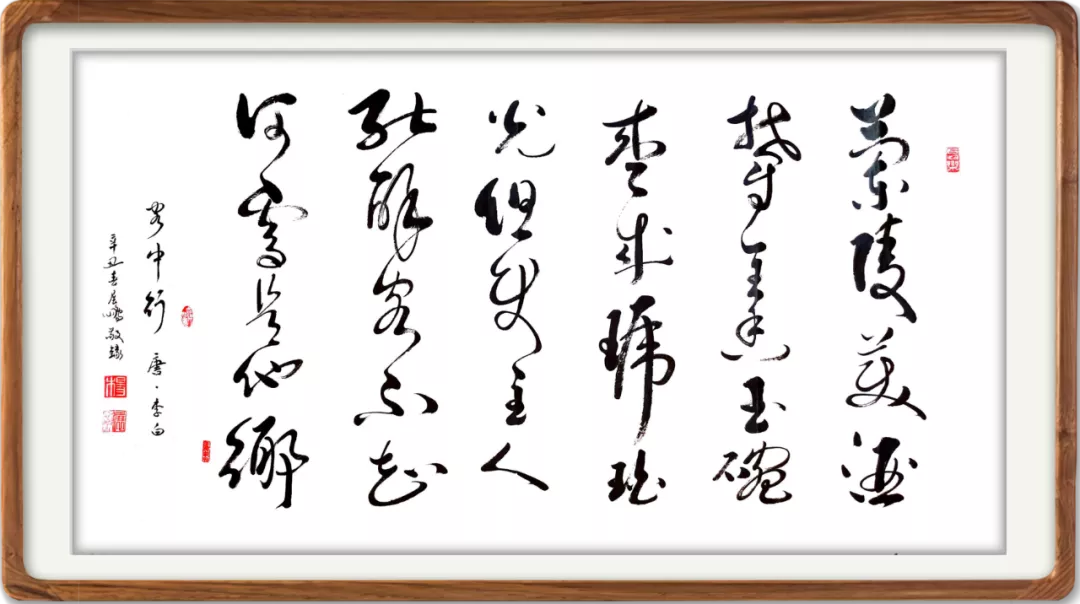 蘭陵美酒
鬱金香玉碗
盛来琥珀
光但使主人
能醉客不知
何處是他鄉
客中行 唐·李白
辛丑春鵬敬錄